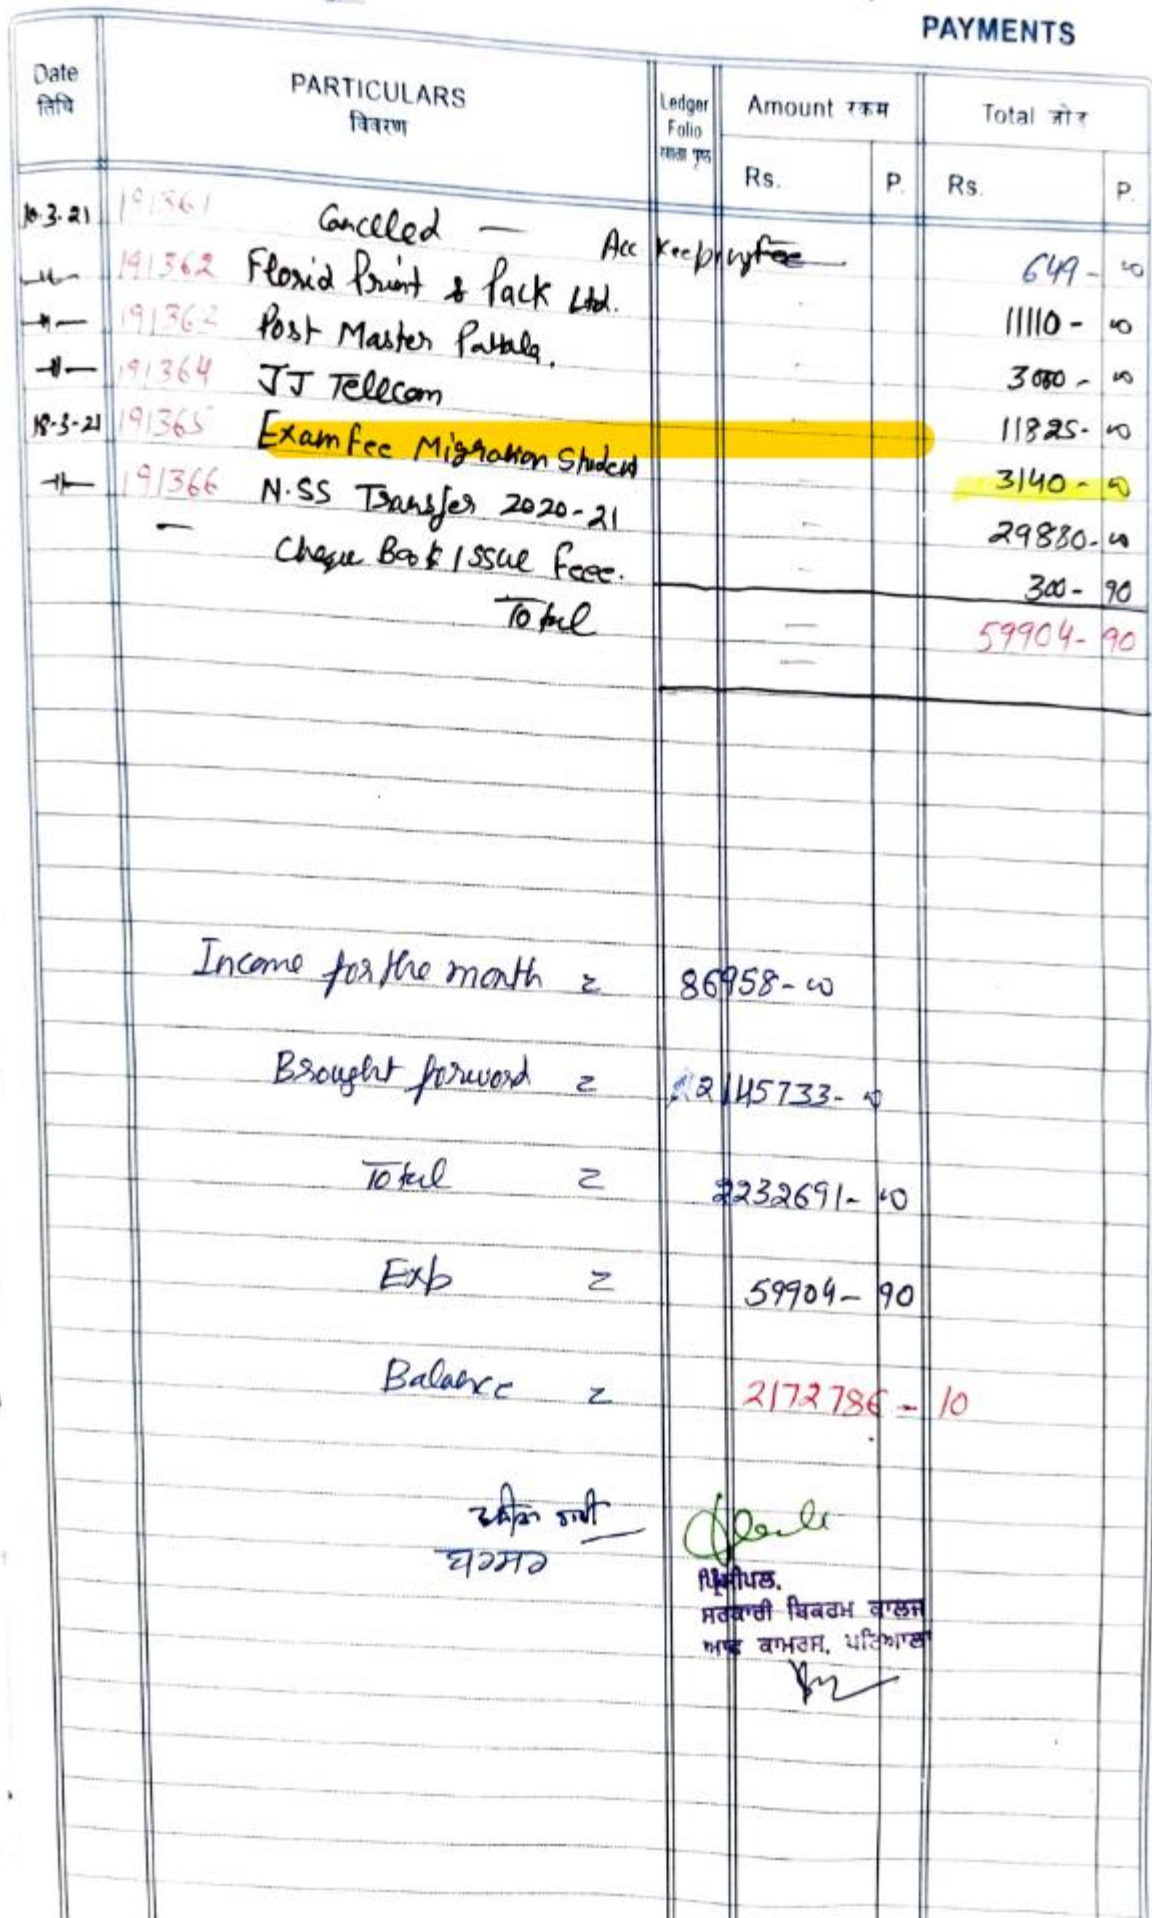 PAYMENTS
Date
तिथि
PARTICULARS
विवरण
Ledger
Folio
खाता पृष्ठ
Amount रकम
Total जोड़
Rs. P. Rs. P.
10.3.21 191361 Cancelled — Acc Keeping fee 649-00
-11- 191362 Florid Print & Pack Ltd. 11110-00
-11- 191363 Post Master Patiala. 3000-00
-11- 191364 JJ Telecom 11825-00
18-3-21 191365 Exam fee Migration Student 3140-00
-11- 191366 N.SS Transfer 2020-21 29880-00
— Cheque Book Issue feee. 300-90
Total 59904-90
Income for the month = 86958-00
Brought forword = 2145733-00
Total = 2232691-00
Exp = 59904-90
Balance = 2172786-10
ਬਰਸਰ
ਪ੍ਰਿੰਸੀਪਲ.
ਸਰਕਾਰੀ ਬਿਕਰਮ ਕਾਲਜ
ਆਫ ਕਾਮਰਸ, ਪਟਿਆਲਾ